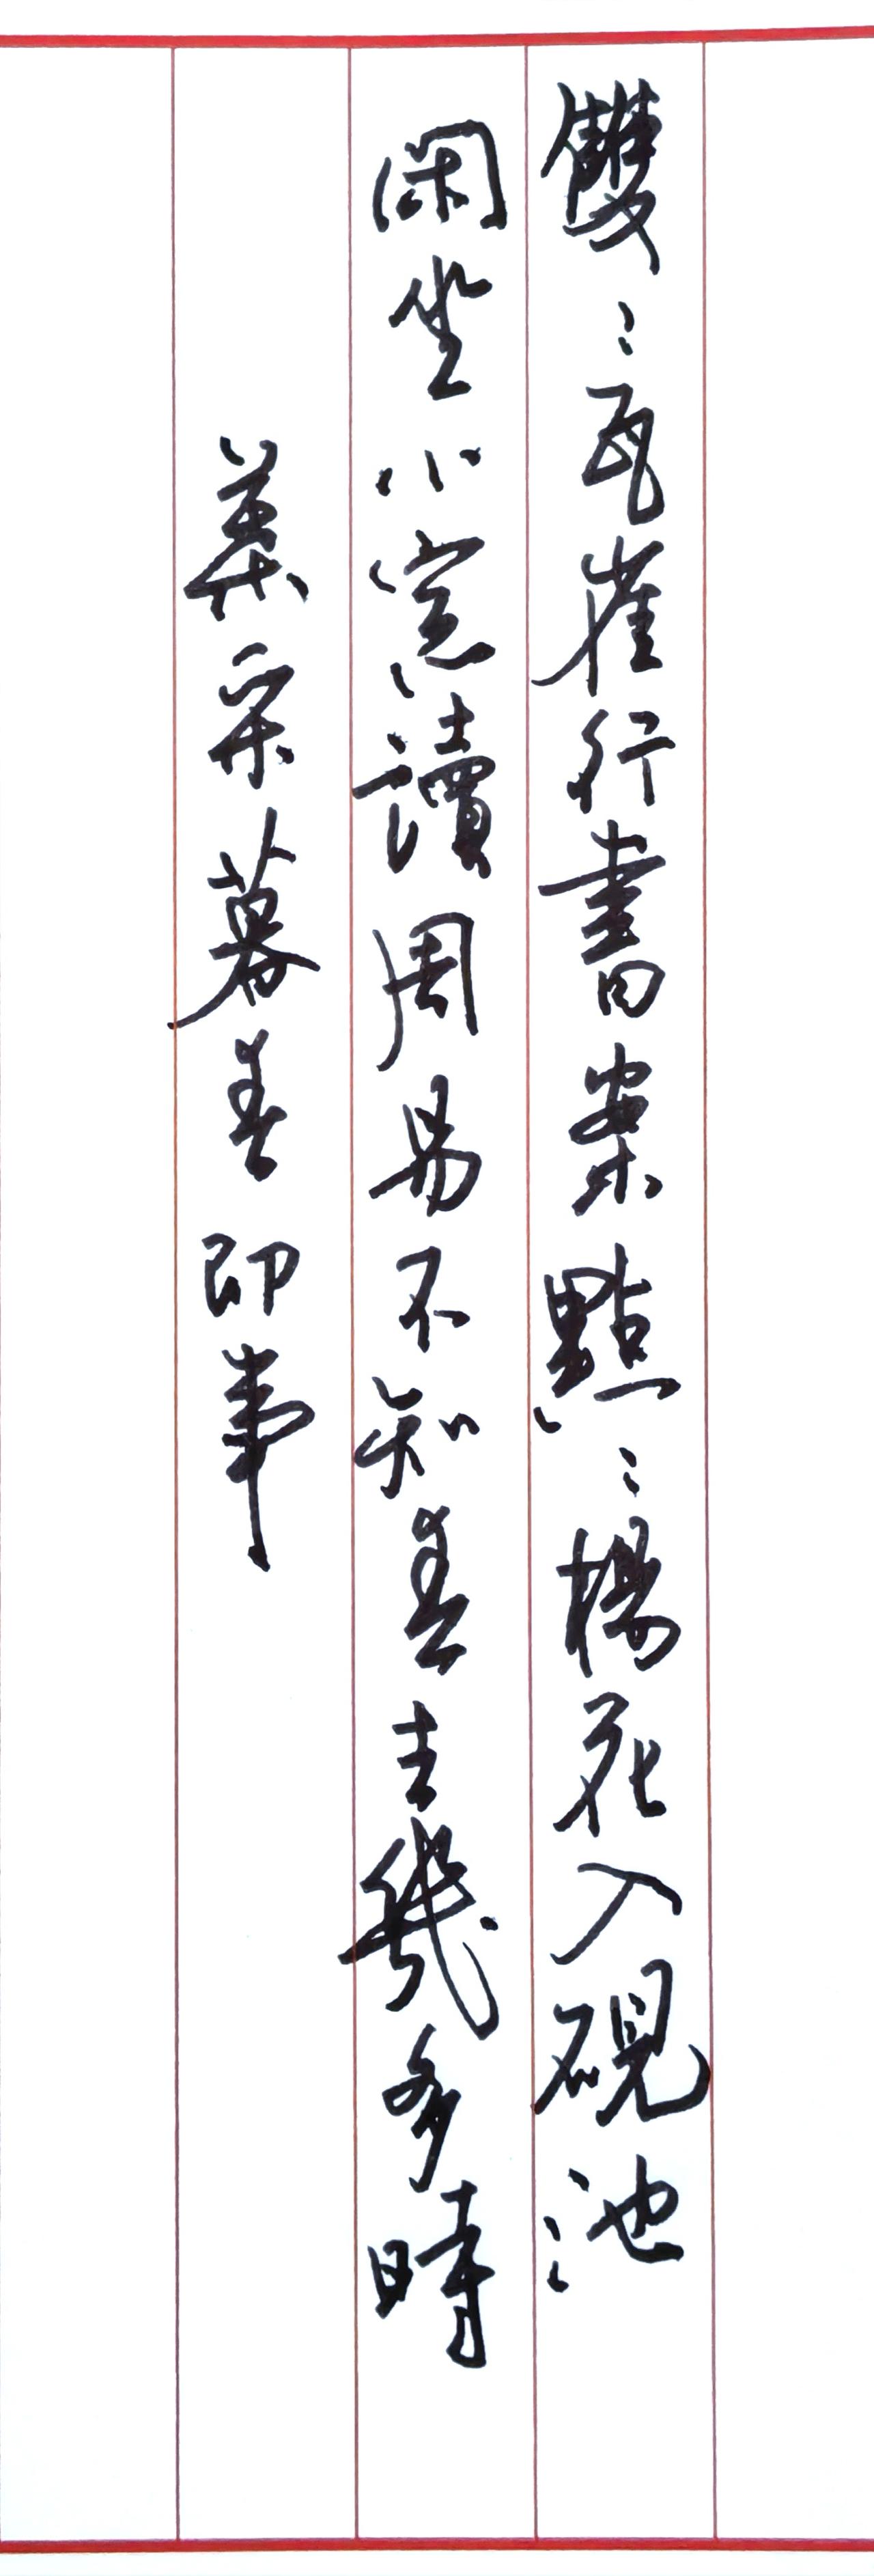 雙〻瓦雀行書案點〻楊花入硯池
閑坐小窓讀周易不知春去幾多時
葉采暮春即事